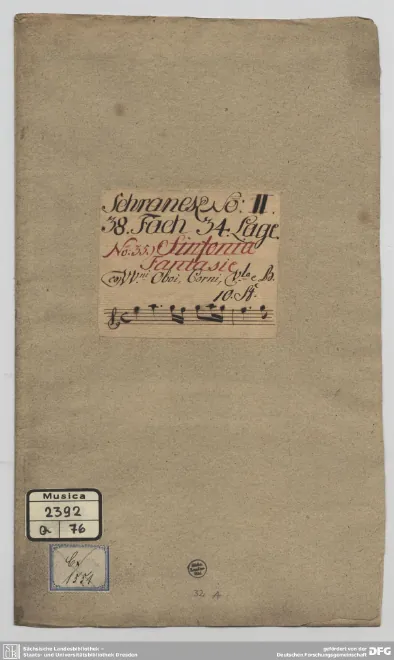 Schranck No: II.
38. Fach 34. Lage
No: 35.) Sinfonia
Fantasie
co VV.ni Oboi, Corni, V.la e B.
10. St.
Musica
2392
Q 76
Cx
1351
32 A
Sächsische Landesbibliothek –
Staats- und Universitätsbibliothek Dresden
gefördert von der
Deutschen Forschungsgemeinschaft
DFG